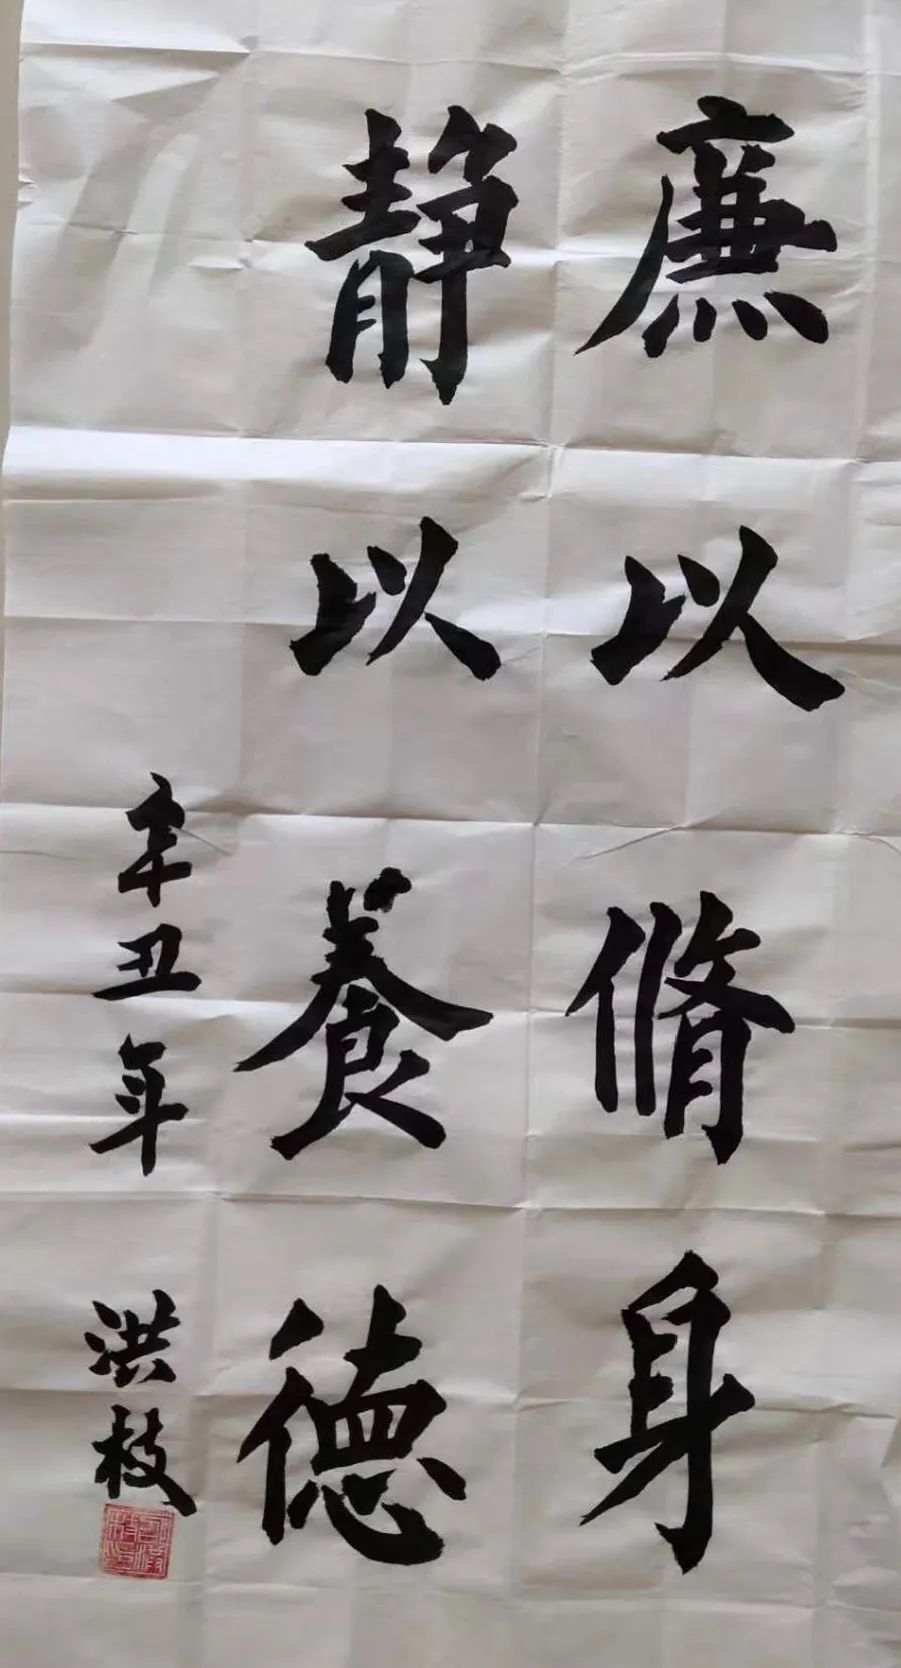 廉以脩身
静以養德
辛丑年 洪枝